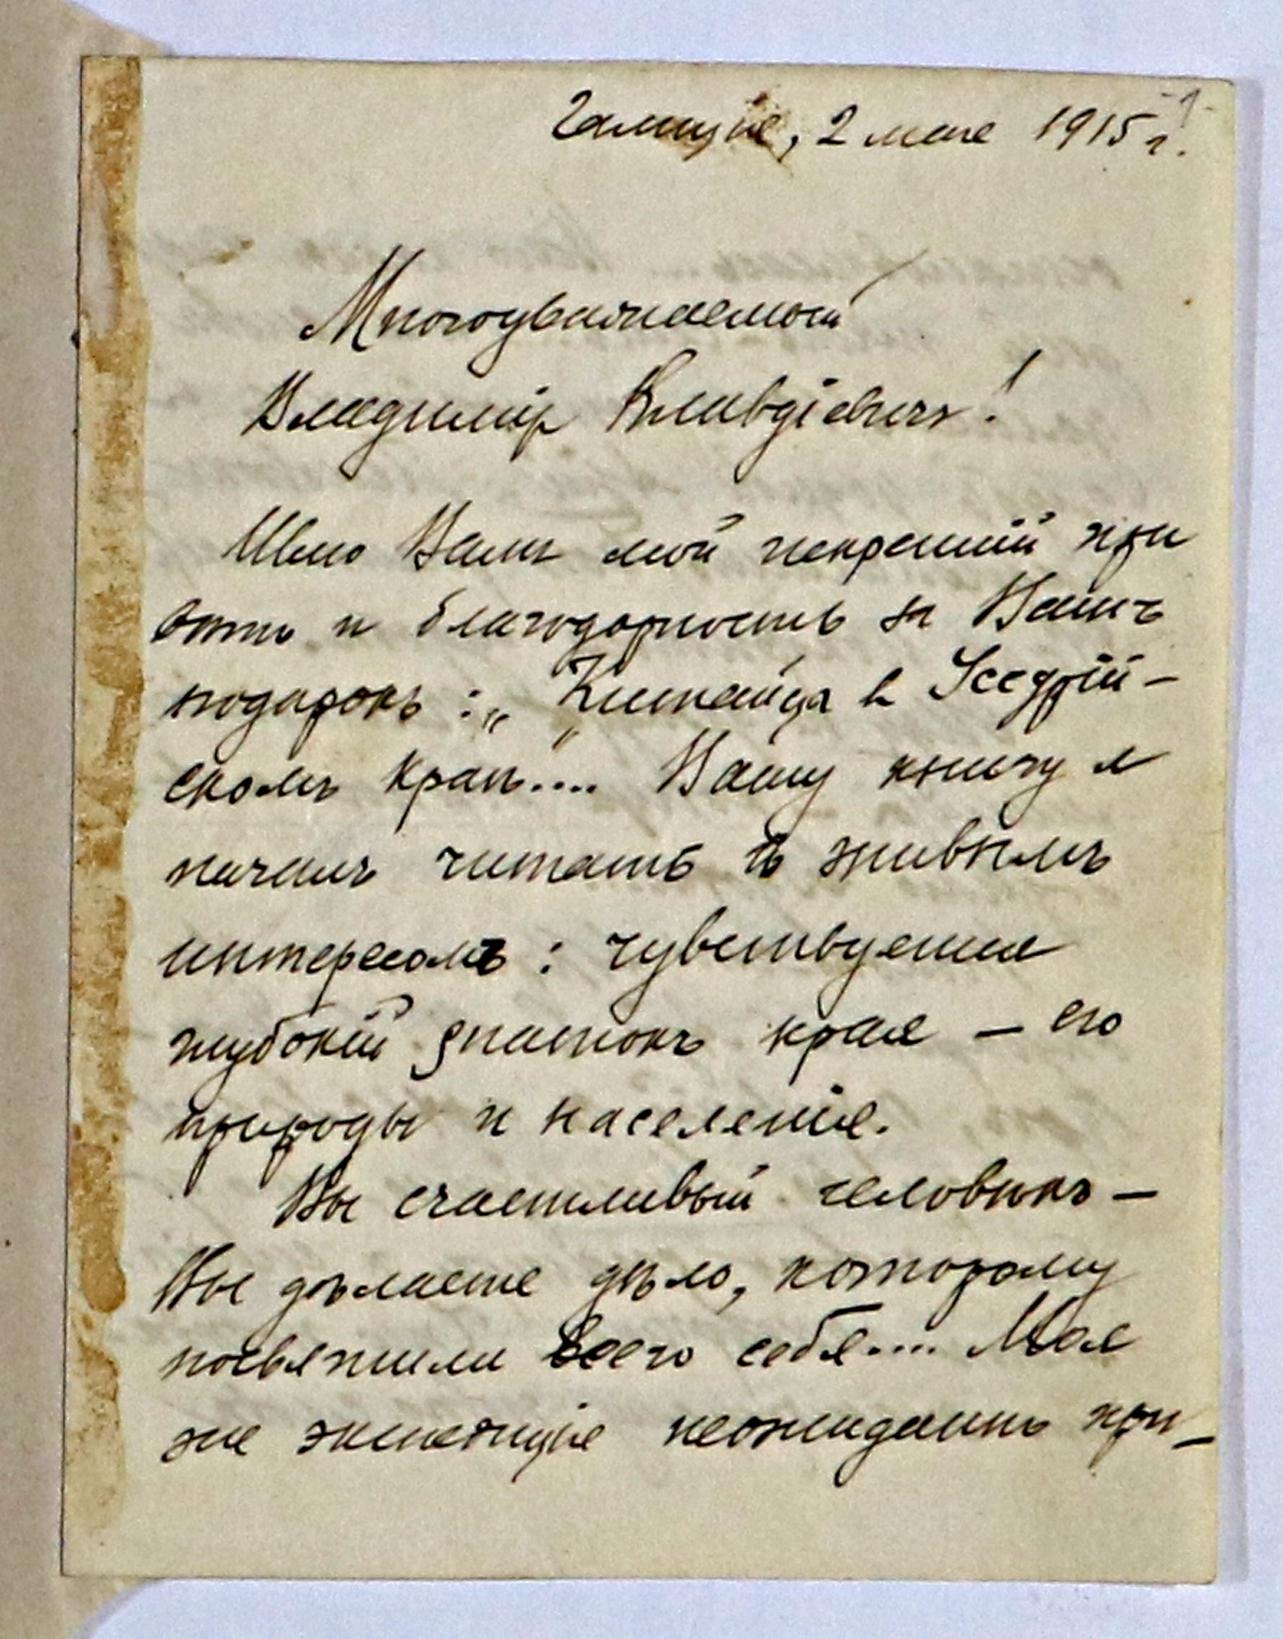 -1-
Галиція, 2 мая 1915 г.
Многоуважаемый
Владиміръ Клавдіевичъ!
Шлю Вамъ мой искренній при
вѣтъ и благодарность за Вашъ
подарокъ: „Китайцы въ Уссурій-
скомъ краѣ".... Вашу книгу я
началъ читать съ живымъ
интересомъ: чувствуется
глубокій знатокъ края — его
природы и населенія.
Вы счастливый человѣкъ —
Вы дѣлаете дѣло, которому
посвятили всего себя.... Моя
же экспедиція неожиданно при-